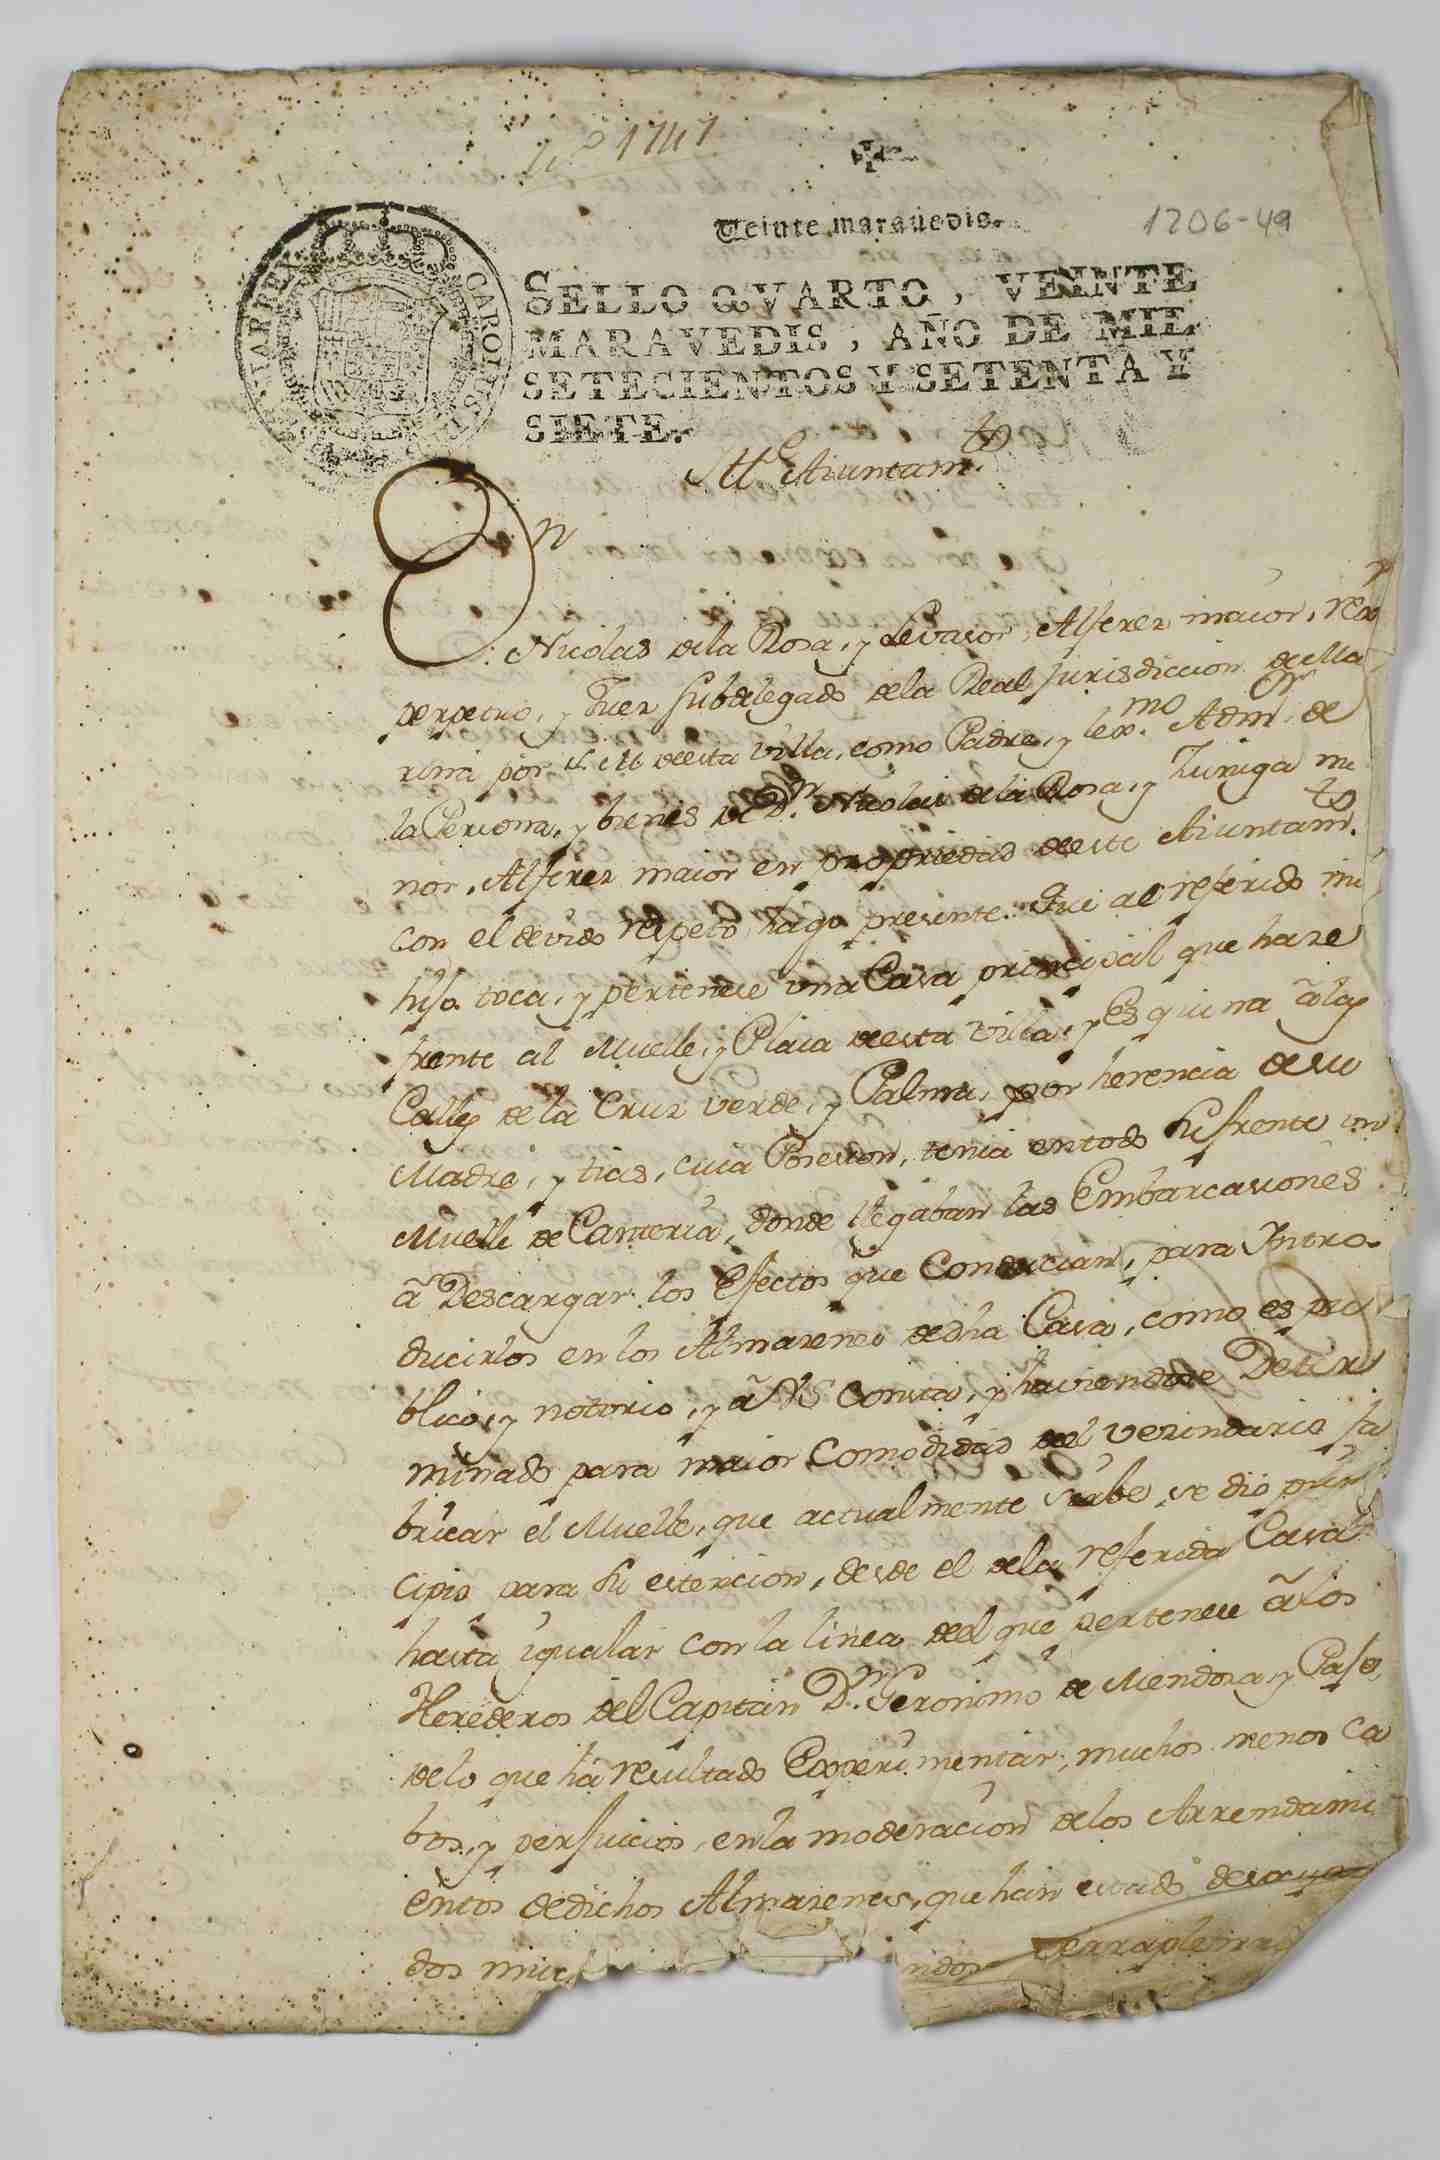 Nº 1747
Veinte maravedis.
1206-49
CAROLUS
SELLO QVARTO, VEINTE
MARAVEDIS, AÑO DE MIL
SETECIENTOS Y SETENTA Y
SIETE.
Ml. Aiuntam.to
Dn
Nicolas dela Rosa, y Levasor, Alferez maior, rexr
perpetuo, y Juez subdelegado dela Real Jurisdiccion de Ma
rina por S. M deesta villa, como Padre, y lexmo. Admor. de
la Persona, y bienes de Dn. Nicolas dela Rosa, y Zuniga me
nor, Alferez maior en propriedad deeste Aiuntamto.
con el devido respeto hago presente: Que al referido mi
hijo toca, y pertenece una Casa principal que haze
frente al Muelle, y Plaza deesta villa, y Esquina â las
Calles de la Cruz verde, y Palma, por herencia desu
Madre, y tias, cuia Posesion, tenia entodo su frente un
Muelle de Canteria, donde llegaban las Embarcasiones
â Descargar los Efectos que Conducian, para Intro-
ducirlos en los Almazenes dedha Casa, como es pu
blico, y notorio, y â VS consta, y haviendose Deter
minado para maior Comodidad del vezindario fa
bricar el Muelle, que actualmente sirbe, se dio prin
cipio para su estencion, desde el dela referida Casa
hasta ygualar con la linea del que pertenece â los
Herederos del Capitan Dn. Geronimo de Mendosa, y
delo que ha resultado Experimentar, muchos menos ca
bos, y perjuicios, en la moderacion delos Arrendami
entos dedichos Almazenes, que han estado
dos